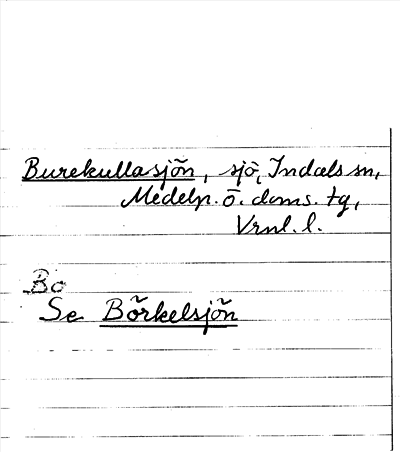 Burekullasjön, sjö, Indals sn,
Medelp. ö. doms. tg,
Vrnl. l.
Bo
Se Börkelsjön